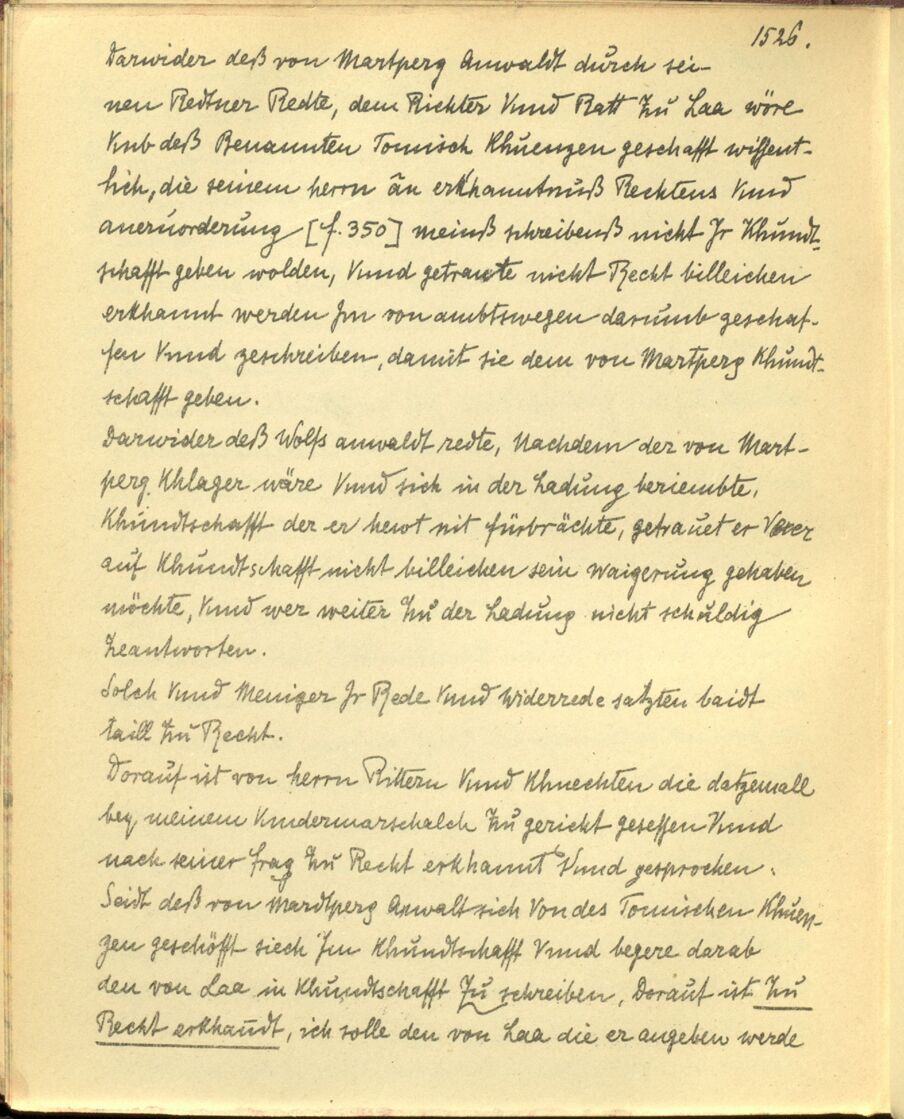 1526.
Darwider deß von Martperg Anwaldt durch sei-
nen Redtner Redte, dem Richter Vnnd Ratt Zu Laa wöre
Vmb deß Benannten Tomisch Khuengen geschafft wissent-
lich, die seinem herrn ān erkhanntnuß Rechtens Vnnd
aneruorderung [f. 350] meinß schreibenß nicht Jr Khundt-
schafft geben wolden, Vnnd getraute nicht Recht billeichen
erkhannt werden Jm von ambtswegen darumb geschaf-
fen Vnnd geschreiben, damit sie dem von Martperg Khundt-
schafft geben.
Darwider deß Wolfs anwaldt redte, Nachdem der von Mart-
perg Khlager wäre Vnnd sich in der Ladung beriembte,
Khundtschafft der er hewt nit fürbrächte, getrauet er
auf Khundtschafft nicht billeichen sein waigerung gehaben
möchte, Vnnd wer weiter Zu der Ladung nicht schuldig
Zeantworten.
Solch Vnnd Meniger Jr Rede Vnnd Widerrede satzten baidt
taill Zu Recht.
Dorauf ist von herrn Rittern Vnnd Khnechten die datzemall
bey meinem Vndermarschalch Zu gericht gesessen Vnnd
nach seiner frag Zu Recht erkhannt Vnnd gesprochen.
Seidt deß von Mardtperg Anwalt sich Von des Tomischen Khuen-
gen geschöfft siech Jm Khundtschafft Vnnd begere darab
den von Laa in Khundtschafft Zu schreiben, Dorauf ist Zu
Recht erkhandt, ich solle den von Laa die er angeben werde